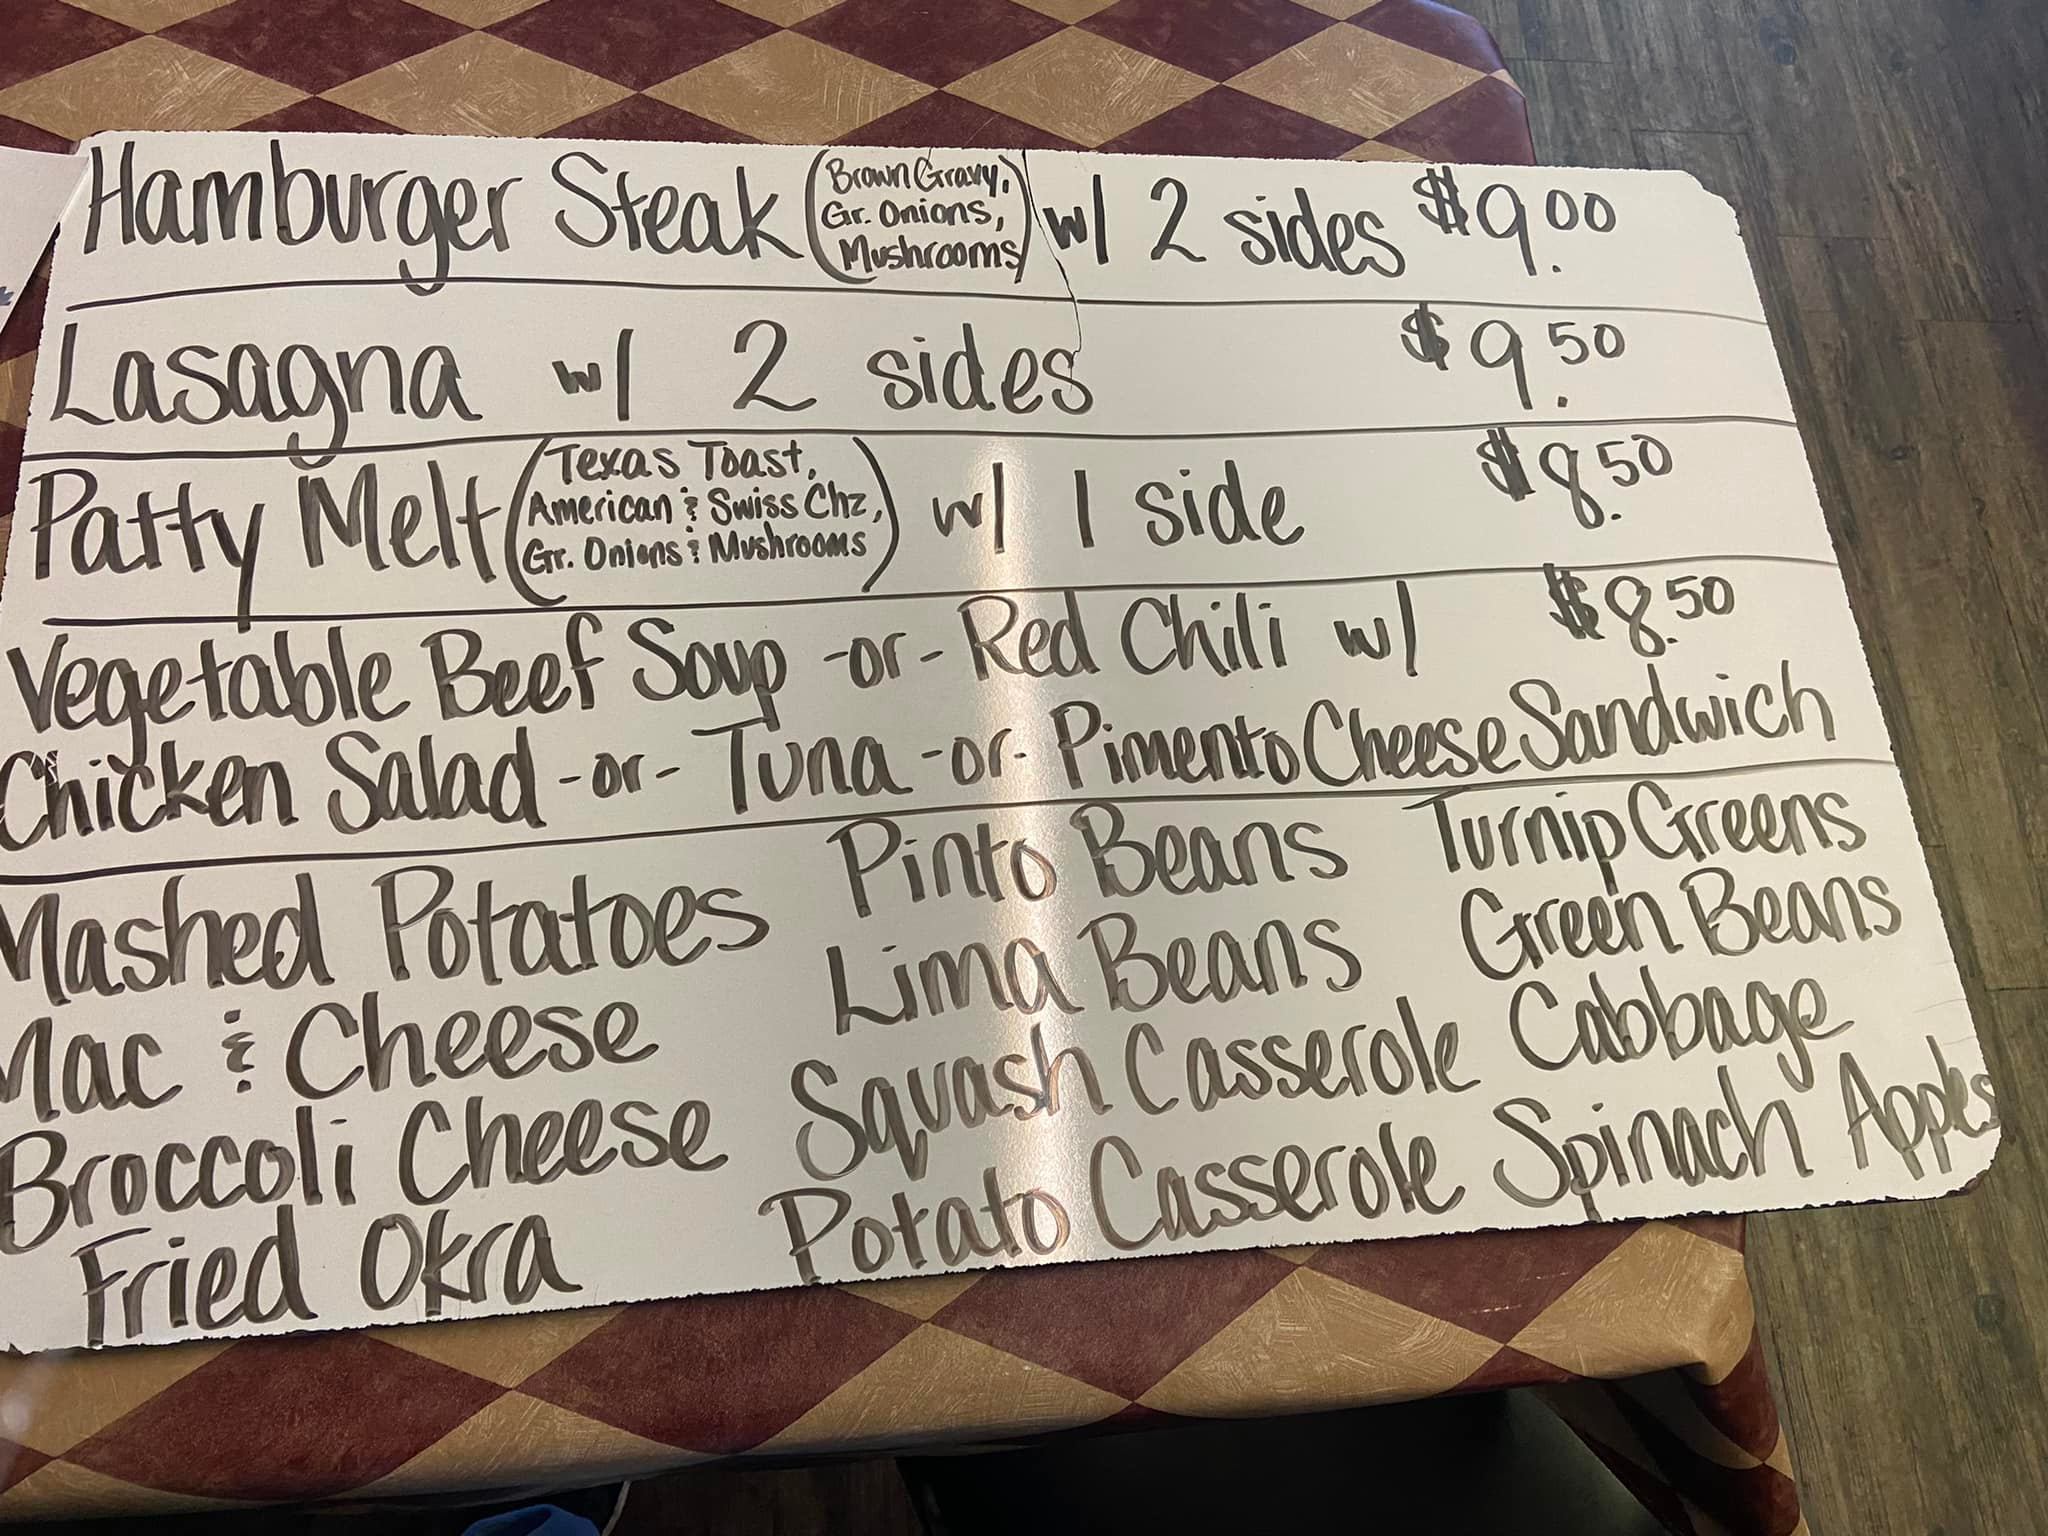 Hamburger Steak (Brown Gravy, Gr. Onions, Mushrooms) w/ 2 sides $9.00
Lasagna w/ 2 sides $9.50
Patty Melt (Texas Toast, American & Swiss Chz, Gr. Onions & Mushrooms) w/ 1 side $8.50
Vegetable Beef Soup -or- Red Chili w/ $8.50
Chicken Salad -or- Tuna -or- Pimento Cheese Sandwich
Mashed Potatoes Pinto Beans Turnip Greens
Mac & Cheese Lima Beans Green Beans
Broccoli Cheese Squash Casserole Cabbage
Fried Okra Potato Casserole Spinach Apples